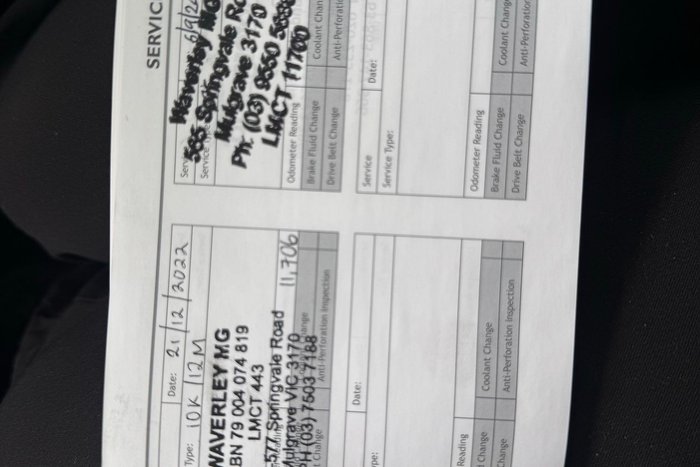 SERVIC
Date: 21/12/2022
Type: 10K/12M
WAVERLEY MG
BN 79 004 074 819
LMCT 443
577 Springvale Road
11,706
Mulgrave VIC 3170
PH (03) 7503 7188
Anti-Perforation Inspection
Waverley MG
6/9/2
585 Springvale Ro
Mulgrave 3170
Ph: (03) 9550 5888
LMCT 11700
Odometer Reading
Brake Fluid Change
Coolant Chan
Drive Belt Change
Anti-Perforatio
Date:
Coolant Change
Anti-Perforation Inspection
Reading
Change
Change
Service
Date:
Service Type:
Odometer Reading
Brake Fluid Change
Coolant Change
Drive Belt Change
Anti-Perforation